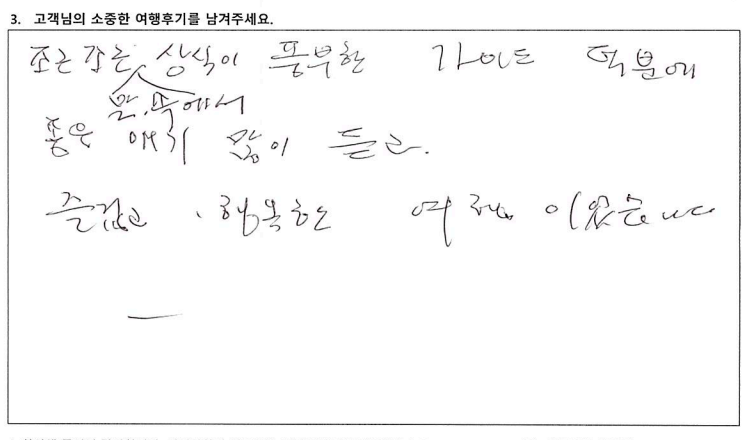 3. 고객님의 소중한 여행후기를 남겨주세요.
조근 조근 상식이 풍부한 가이드 덕분에
말, 속에서
좋은 얘기 많이 듣고.
즐겁고, 행복한 여행 이었습니다